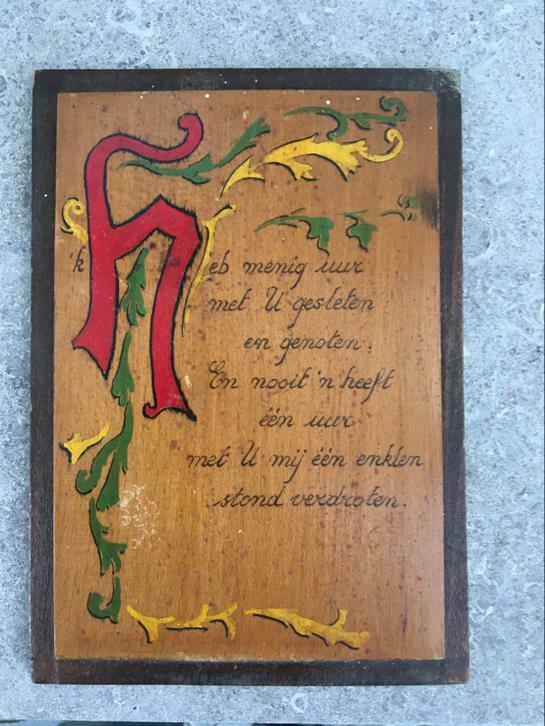 'k Heb menig uur
met U gesleten
en genoten.
En nooit 'n heeft
één uur
met U mij één enklen
stond verdroten.